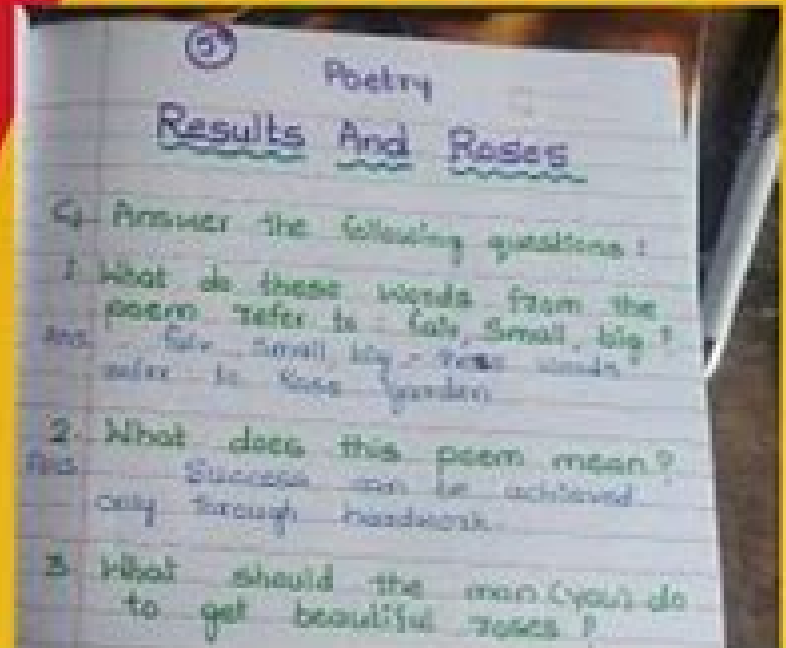 Poetry
Results And Roses
Answer the following questions :
1 What do these words from the
poem refer to : fair, small, big ?
Ans. - fair small, big - words
refer to Rose garden
2. What does this poem mean?
Ans Success can be achieved
only through hardwork
3 What should the man (you) do
to get beautiful roses ?